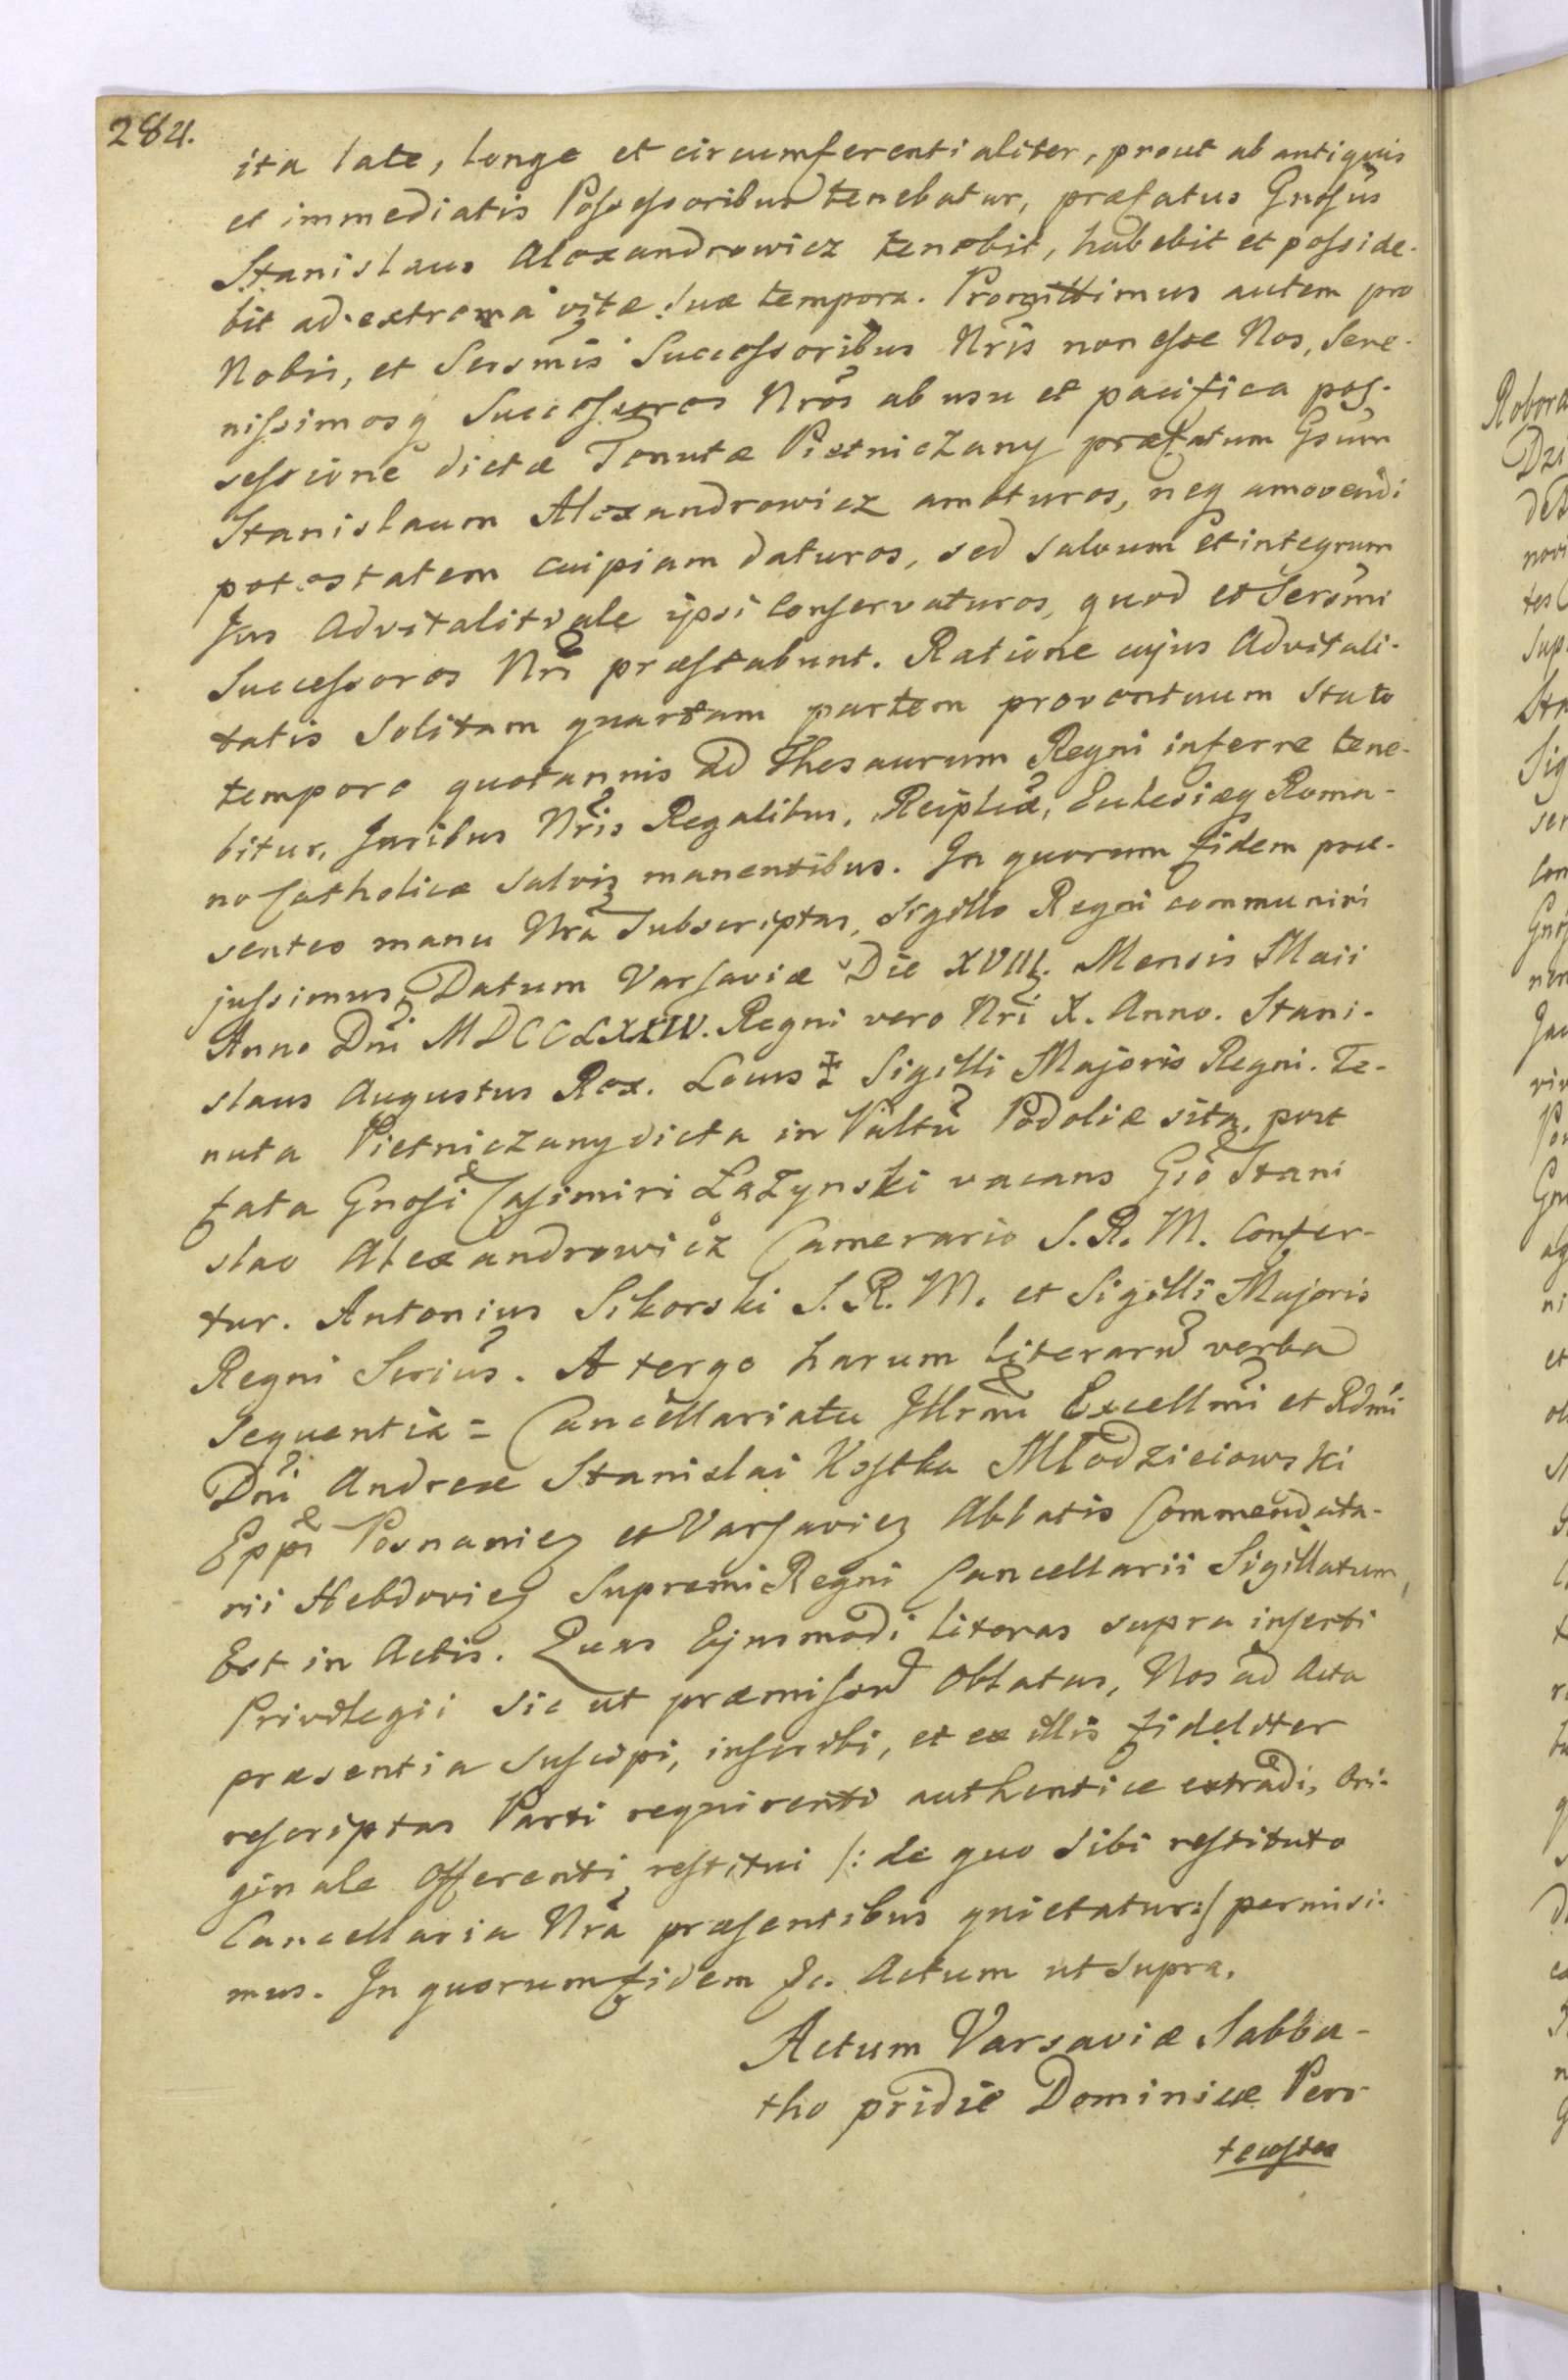 284.
ita late, longe et circumferentialiter, prout ab antiquis
et immediatis Possessoribus tenebatur, præfatus Gnosus
Stanislaus Alexandrowicz tenebit, habebit et posside-
bit ad extrema vitæ suæ tempora. Promittimus autem pro
Nobis, et Sersmis Successoribus Nris non esse Nos, Sere-
nissimosq Successores Nros ab usu et pacifica pos-
sessione dictæ Tenutæ Pietniczany præfatum Gsum
Stanislaum Alexandrowicz amoturos, neq amovendi
potestatem cuipiam daturos, sed salvum et integrum
Jus Advitalitiale ipsi conservaturos, quod et Sersmi
Successores Nri præstabunt. Ratione cujus Advitali-
tatis solitam quartam partem proventuum stato
tempore quotannis ad Thesaurum Regni inferre tene-
bitur, Juribus Nris Regalibus, Reiplicæ, Eclesiæq Roma-
no Catholicæ salvis manentibus. In quorum fidem præ-
sentes manu Nra subscriptas, Sigillo Regni communiri
jussimus. Datum Varsaviæ Die XVIII. Mensis Maii
Anno Dni MDCCLXXIV. Regni vero Nri X. Anno. Stani-
slaus Augustus Rex. Locus ‡ Sigilli Majoris Regni. Te-
nuta Pietniczany dicta in Paltu Podoliæ sita, post
fata Gnosi Casimiri Łążynski vacans Gso Stani
slao Alexandrowicz Camerario S. R. M. confer-
tur. Antonius Sikorski S. R. M. et Sigilli Majoris
Regni Srius. A tergo harum literaru verba
sequentia = Cancellariatu Illrmi Excellmi et Rdmi
Dni Andreæ Stanislai Kostka Młodzieiowski
Eppi Posnanien et Varsavien Abbatis Commendata-
rii Hebdovien Supremi Regni Cancellarii Sigillatum
Est in Actis. Quas Ejusmodi literas supra inserti
Privilegii sic ut præmissu oblatas, Nos ad Acta
præsentia suscipi, inscribi, et ex illis fideliter
rescriptas Parti requirenti authentice extradi, Ori-
ginale offerenti restitui /: de quo sibi restituto
Cancellaria Nra præsentibus quietatur :/ permisi-
mus. In quorum fidem &c. Actum ut supra.
Actum Varsaviæ Sabba-
tho pridie Dominicæ Pen-
tecostes